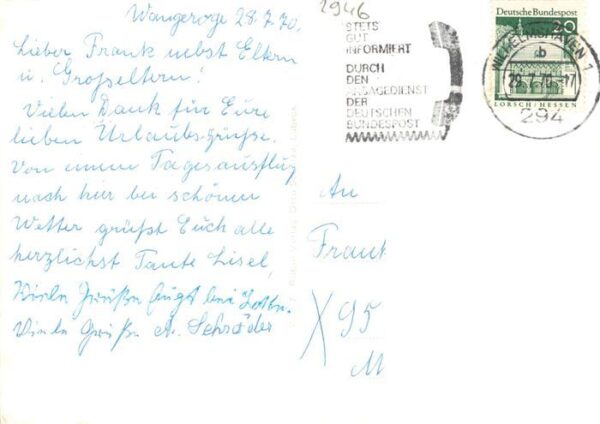 Wangerooge 28.7.70.
Lieber Frank nebst Eltern
u. Großeltern!
Vielen Dank für Eure
lieben Urlaubsgrüße.
Von einem Tagesausflug
nach hier bei schönem
Wetter grüßt Euch alle
herzlichst Tante Lisel,
Viele Grüße fügt bei
Viele Grüße A. Schröder
2946
STETS
GUT
INFORMIERT
DURCH
DEN
ANSAGEDIENST
DER
DEUTSCHEN
BUNDESPOST
Deutsche Bundespost
20
LORSCH/HESSEN
WILHELMSHAVEN 1
b
29.7.70-17
294
An
Frank
X 95